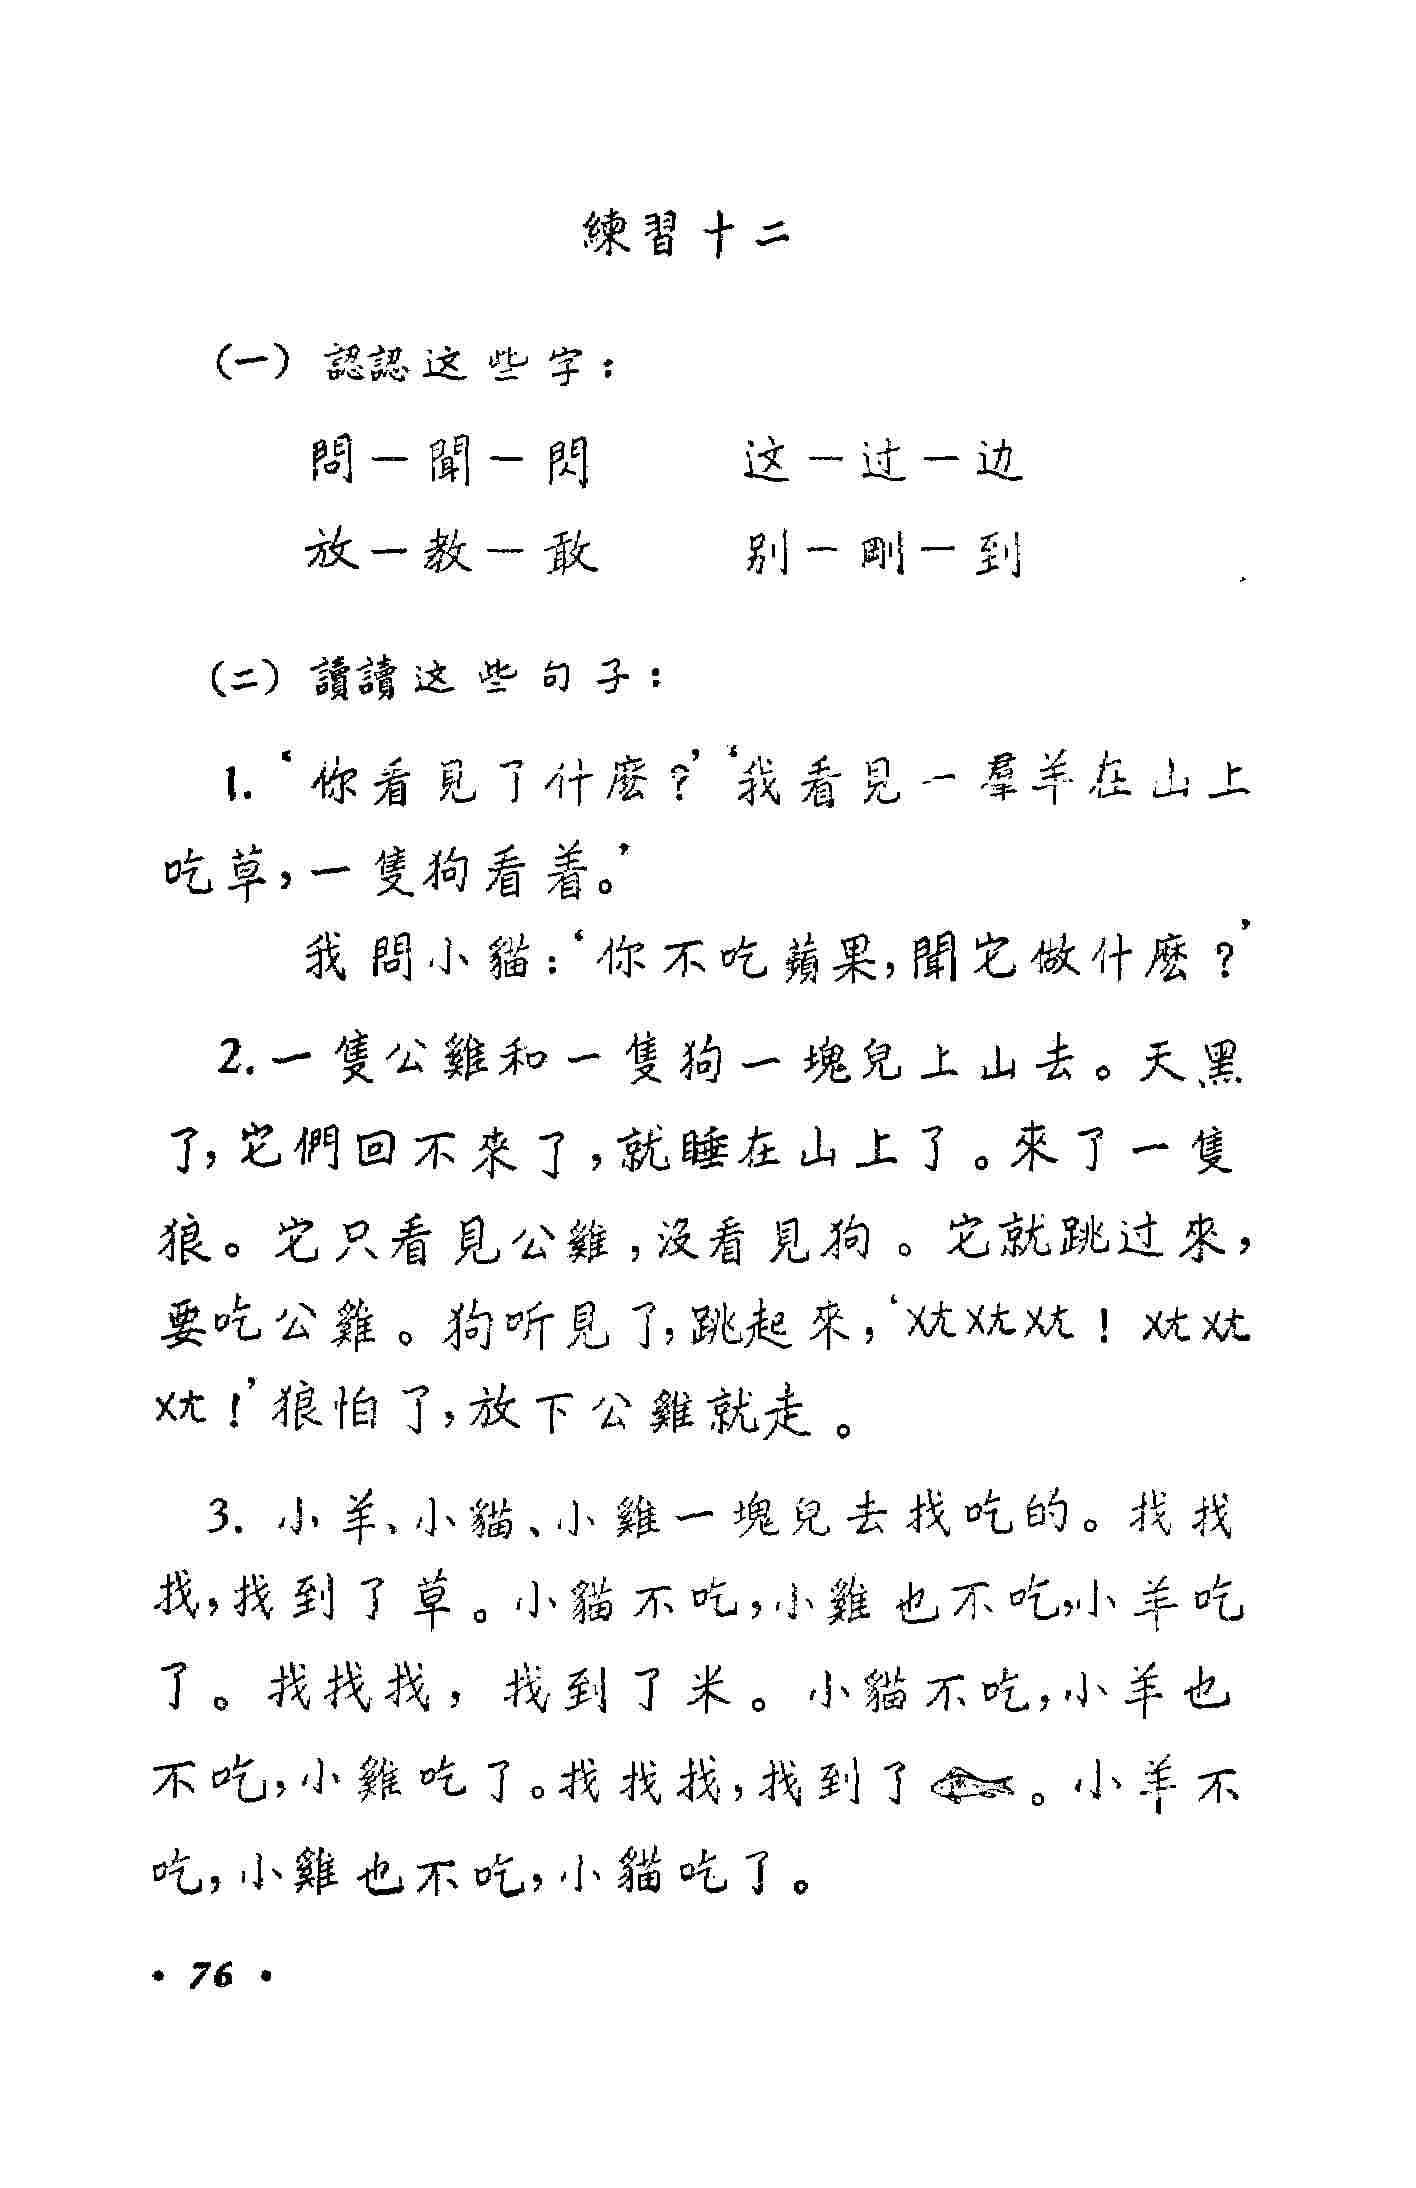 練習十二
(一) 認認这些字：
問一聞一閃 这一过一边
放一教一敢 别一剛一到
(二) 讀讀这些句子：
1. ‘你看見了什麽？’‘我看見一羣羊在山上
吃草，一隻狗看着。’
我問小貓：‘你不吃蘋果，聞它做什麽？’
2. 一隻公雞和一隻狗一塊兒上山去。天黑
了，它們回不來了，就睡在山上了。來了一隻
狼。它只看見公雞，沒看見狗。它就跳过來，
要吃公雞。狗听見了，跳起來，‘ㄨㄤㄨㄤㄨㄤ！ㄨㄤㄨㄤ
ㄨㄤ！’狼怕了，放下公雞就走。
3. 小羊、小貓、小雞一塊兒去找吃的。找找
找，找到了草。小貓不吃，小雞也不吃，小羊吃
了。找找找，找到了米。小貓不吃，小羊也
不吃，小雞吃了。找找找，找到了。小羊不
吃，小雞也不吃，小貓吃了。
• 76 •